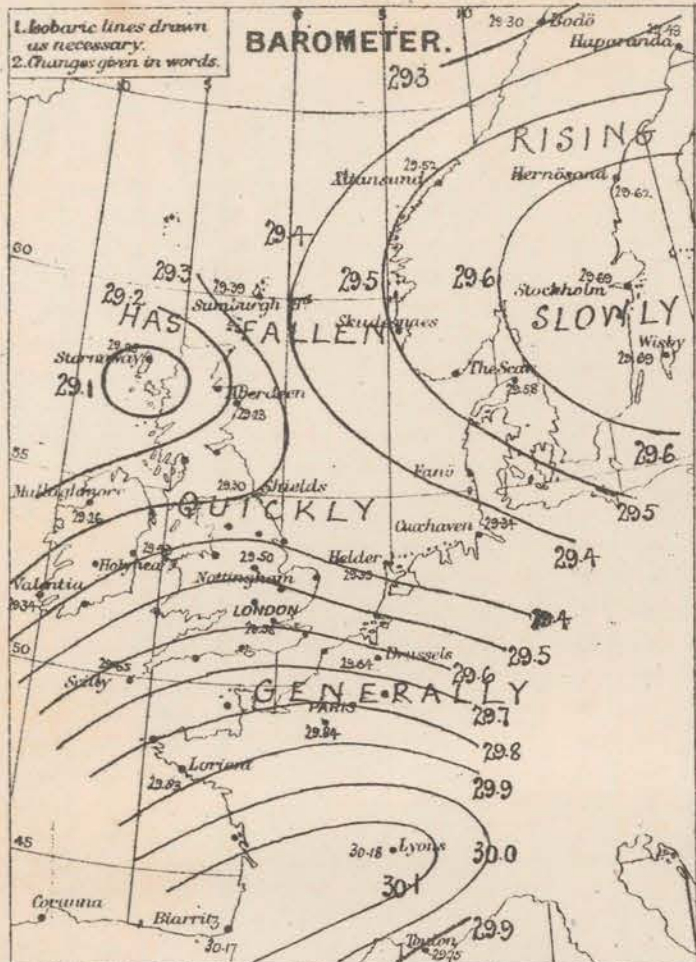 1. Isobaric lines drawn
as necessary.
2. Changes given in words.
BAROMETER.
10
5
0
5
10
29.30
Bodö
29.49
Haparanda
293
RISING
29.52
Xtiansund
Hernösand
29.62
29.4
60
29.3
29.39
Sumburgh
29.5
29.6
29.69
Stockholm
29.2
HAS
FALLEN
Skudesnaes
SLOWLY
Wisby
Stornoway
29.69
29.1
Aberdeen
29.23
The Scaw
29.58
55
29.6
Mullaghmore
29.26
29.30
Shields
Fanö
29.5
QUICKLY
Cuxhaven
29.34
29.4
Holyhead
29.50
Helder
29.39
Valentia
29.34
Nottingham
29.4
LONDON
29.58
29.5
50
29.65
Scilly
29.64
Brussels
29.6
GENERALLY
29.7
PARIS
29.84
29.8
Lorient
29.83
29.9
45
30.18
Lyons
30.0
30.1
Corunna
Biarritz
30.17
29.9
Toulon
29.75